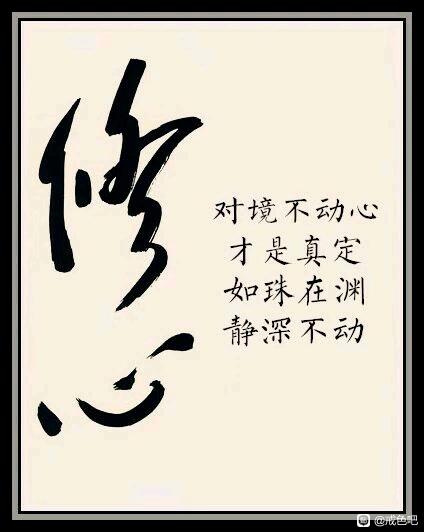 修心
对境不动心
才是真定
如珠在渊
静深不动
@戒色吧